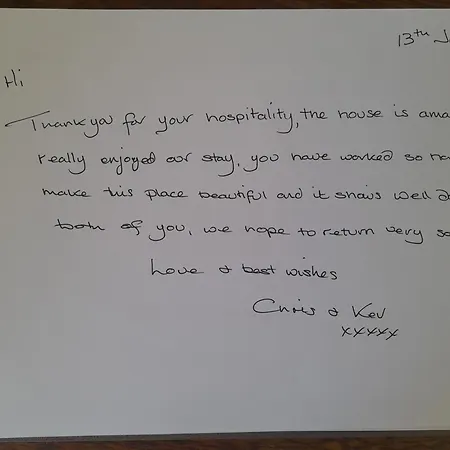 13th J
Hi
Thankyou for your hospitality, the house is ama
really enjoyed our stay, you have worked so ha
make this place beautiful and it shows well do
both of you, we hope to return very so
Love & best wishes
Chris & Kev
xxxxx